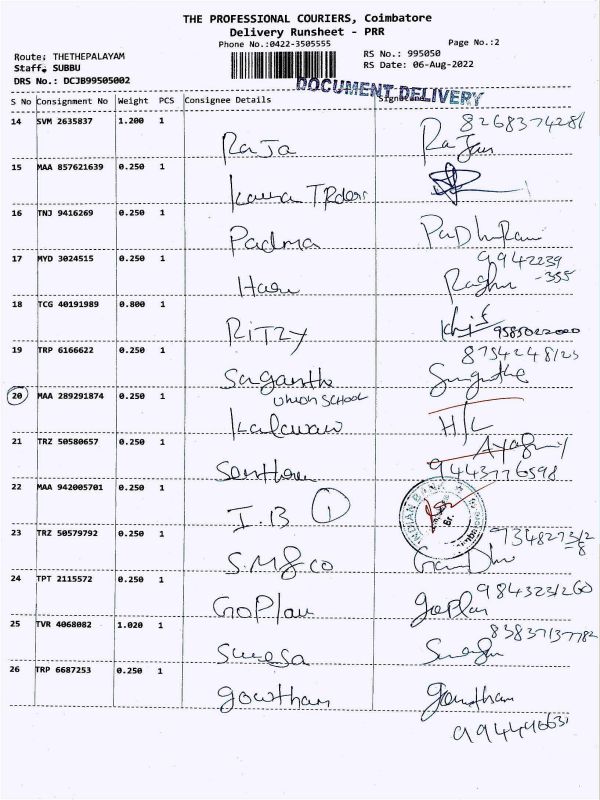 THE PROFESSIONAL COURIERS, Coimbatore
Delivery Runsheet - PRR
Phone No.:0422-3505555
Page No.:2
Route: THETHEPALAYAM
Staff: SUBBU
DRS No.: DCJB99505002
RS No.: 995050
RS Date: 06-Aug-2022
DOCUMENT DELIVERY
S No Consignment No Weight PCS Consignee Details Signature
14 SVM 2635837 1.200 1 Raja Rajan 8268374281
15 MAA 857621639 0.250 1
16 TNJ 9416269 0.250 1 Padma
17 MYD 3024515 0.250 1 Raghu 9942239
-355
18 TCG 40191989 0.800 1 RITZY 9585022000
19 TRP 6166622 0.250 1 Suganthe
20 MAA 289291874 0.250 1 UNION SCHOOL H/L
21 TRZ 50580657 0.250 1 9443776598
22 MAA 942005701 0.250 1 I.B 1 INDIAN BANK
23 TRZ 50579792 0.250 1 S.M & co
24 TPT 2115572 0.250 1 GoPlan goplan 9843231260
25 TVR 4068082 1.020 1 83837137782
26 TRP 6687253 0.250 1 gowtham gowtham